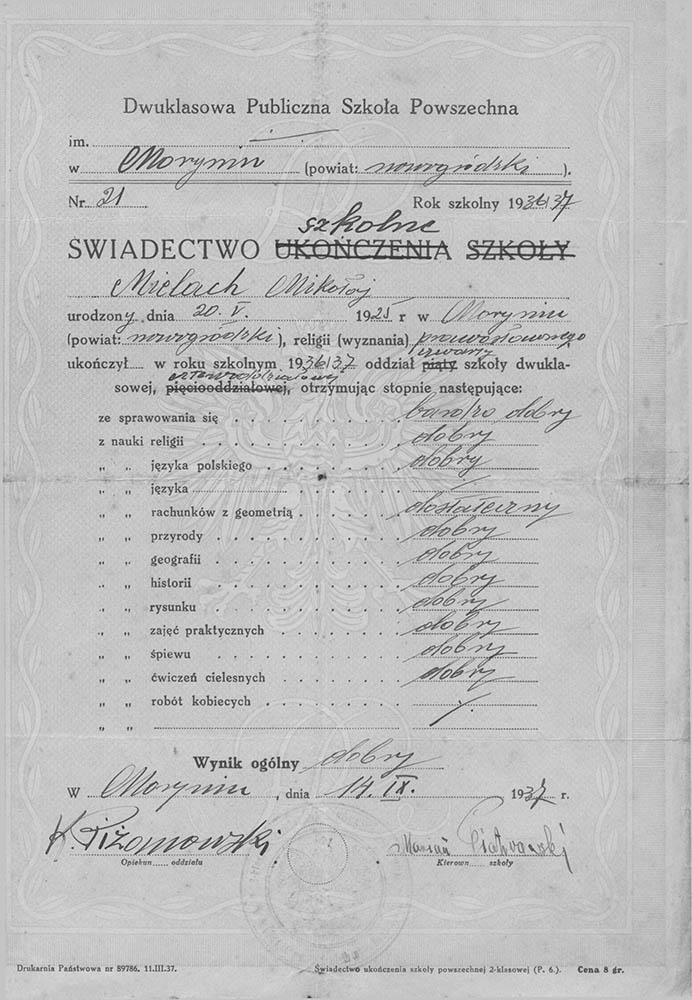 Dwuklasowa Publiczna Szkoła Powszechna
im.
w Moryniu (powiat: nowogródzki ).
Nr. 21 Rok szkolny 1936/37
szkolne
ŚWIADECTWO UKOŃCZENIA SZKOŁY
Mielach Mikołaj
urodzony dnia 20. V. 1925 r w Moryniu
(powiat: nowogródzki), religii (wyznania) prawosławnego
czwarty
ukończył w roku szkolnym 1936/37 oddział piąty szkoły dwukla-
sowej, pięciooddziałowej, otrzymując stopnie następujące:
ze sprawowania się bardzo dobry
z nauki religii dobry
„ „ języka polskiego dobry
„ „ języka
„ „ rachunków z geometrią dostateczny
„ „ przyrody dobry
„ „ geografii dobry
„ „ historii dobry
„ „ rysunku dobry
„ „ zajęć praktycznych dobry
„ „ śpiewu dobry
„ „ ćwiczeń cielesnych dobry
„ „ robót kobiecych
„ „
Wynik ogólny dobry
W Moryniu, dnia 14. IX. 1937 r.
Opiekun oddziału Kierown szkoły
Drukarnia Państwowa nr 89786. 11.III.37. Świadectwo ukończenia szkoły powszechnej 2-klasowej (P. 6.). Cena 8 gr.